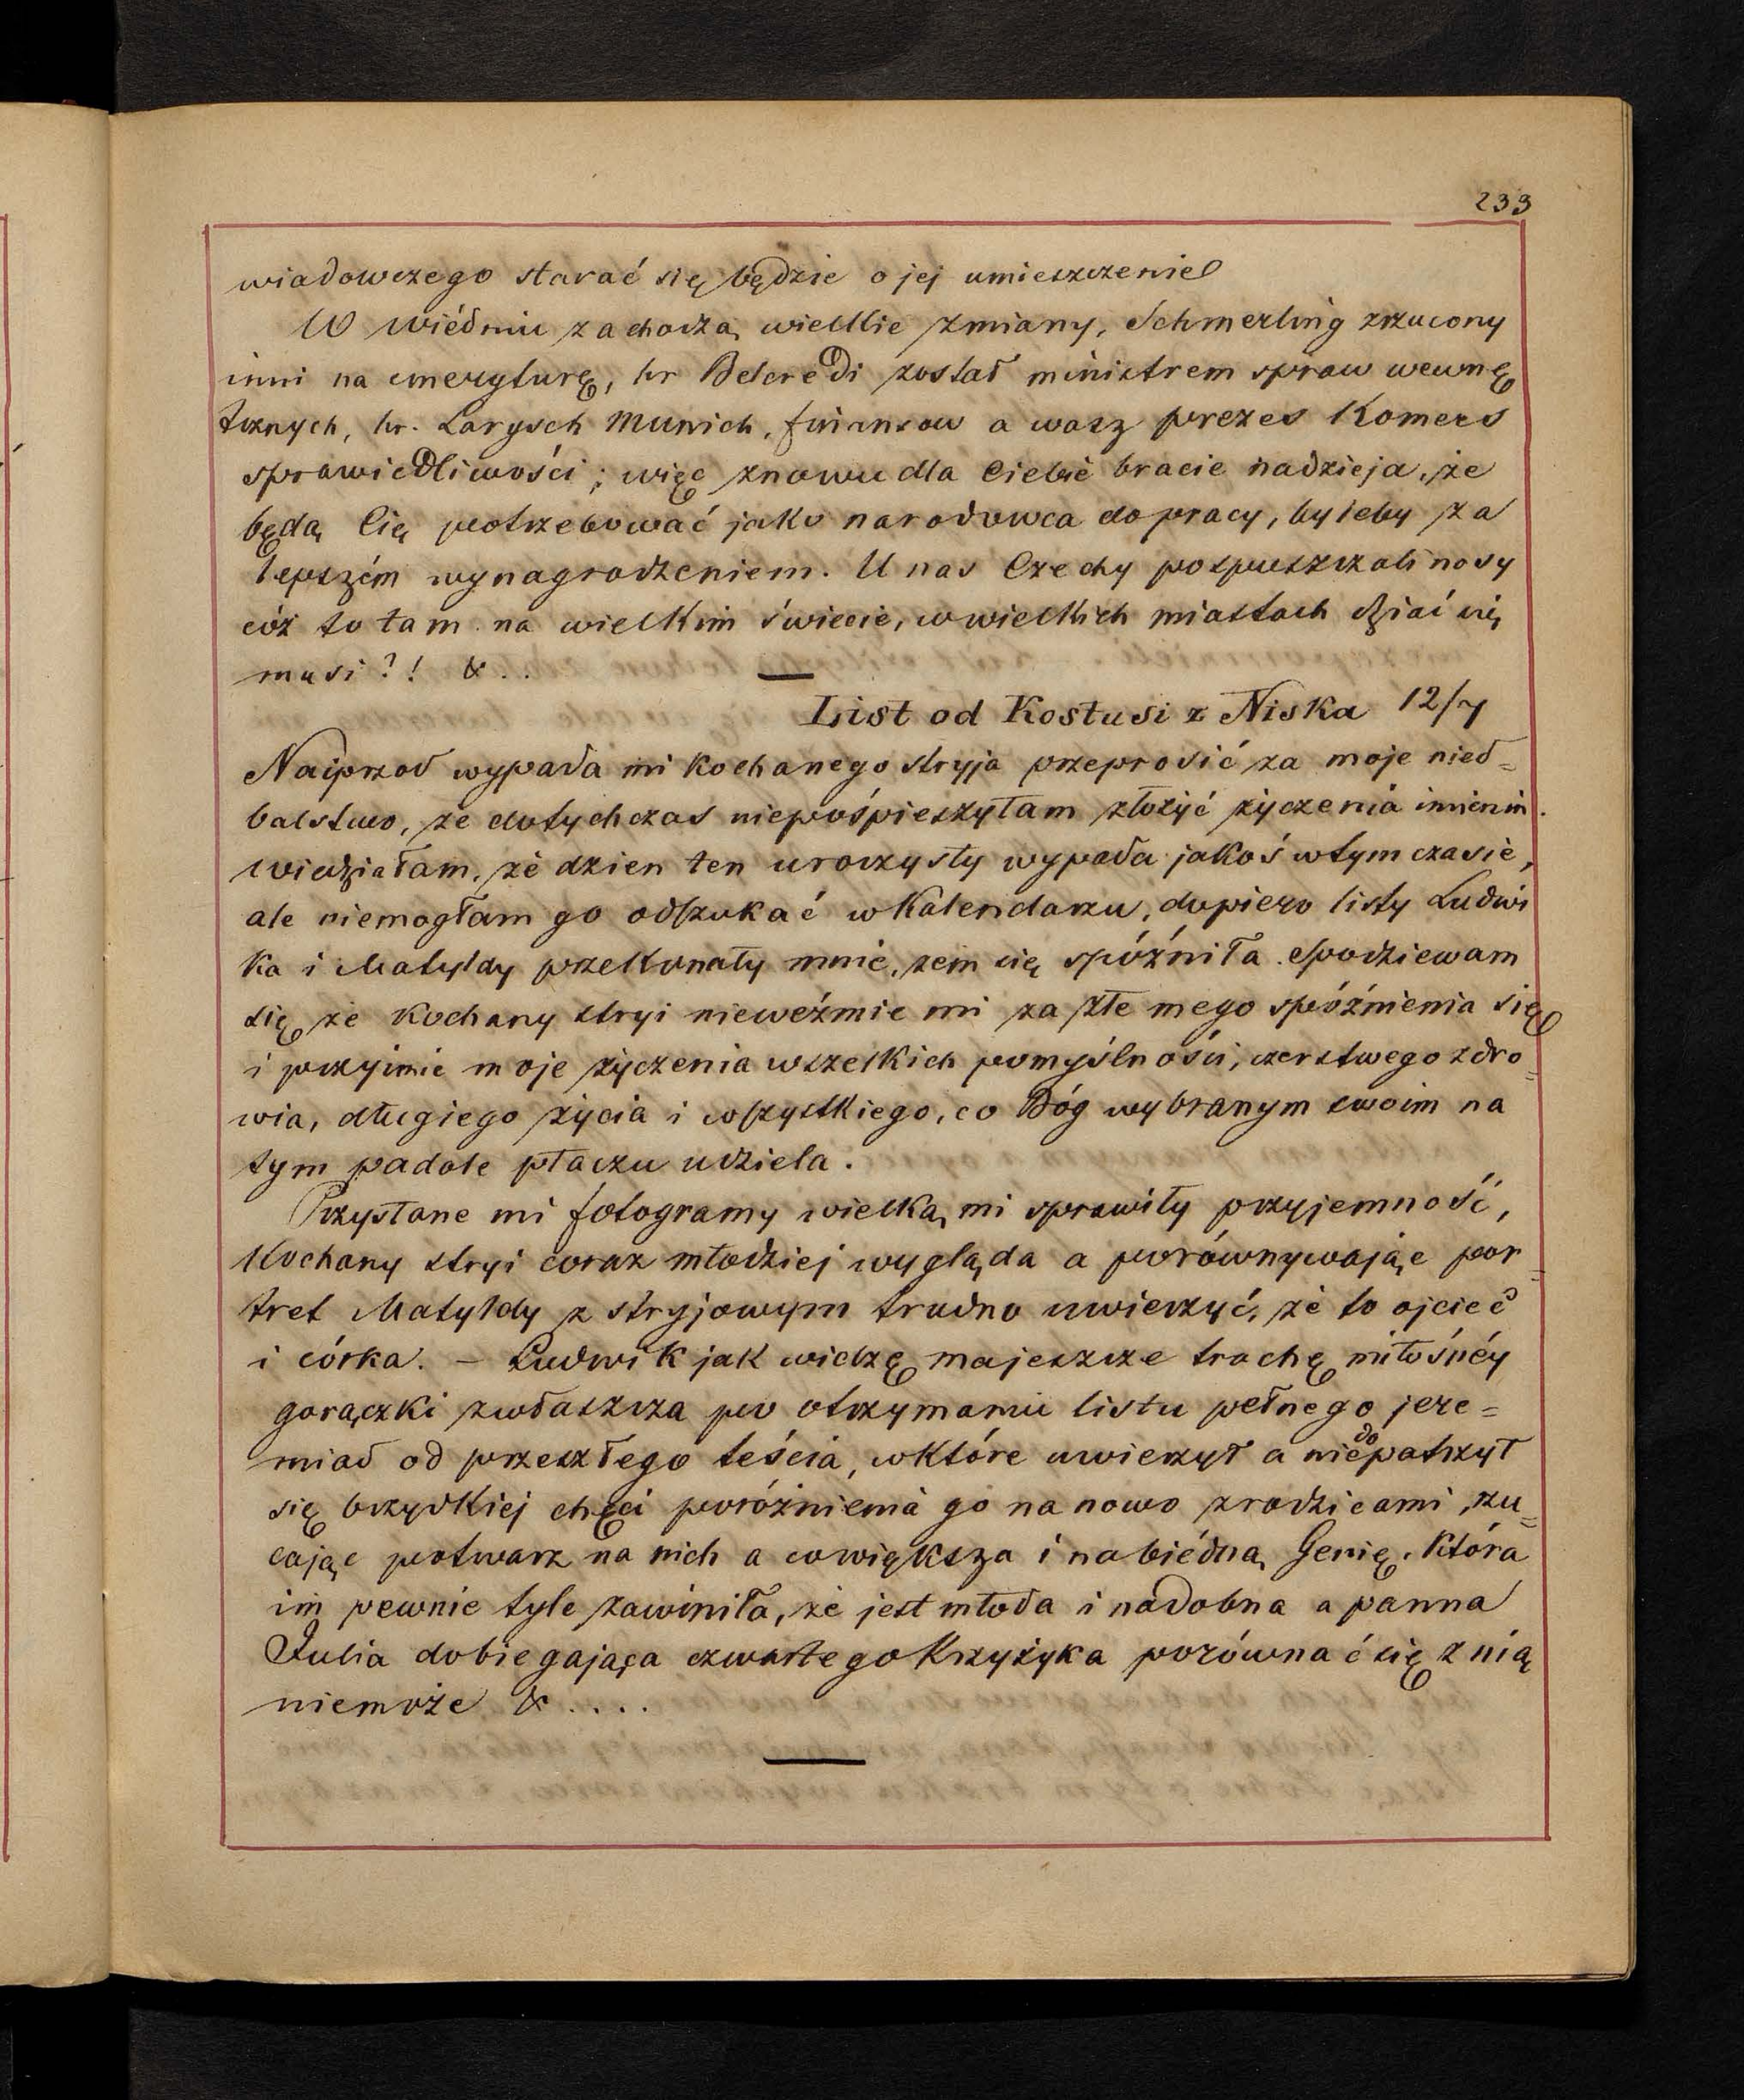 233
wiadowczego starać się będzie o jej umieszczenie
W wiédniu zachodzą wielkie zmiany, Schmerling zrzucony
inni na emeryturę, hr Belcredi został ministrem spraw wewnę
trznych, hr. Larysch Munich, finansow a wasz prezes Komers
sprawiedliwości; więc znowu dla Ciebie bracie nadzieja, że
będą Cię potrzebować jako narodowca do pracy, byleby za
lepszém wynagrodzeniem. U nas Czechy pospuszczali nosy
cóż to tam na wielkim świecie, w wielkich miastach dziać się
musi?! & ..
List od Kostusi z Niska 12/7
Naiprzod wypada mi kochanego stryja przeprosić za moje nied=
balstwo, że dotychczas niepośpieszyłam złożyć życzenia imienin.
wiedziałam, że dzien ten uroczysty wypada jakoś wtym czasie,
ale niemogłam go odszukać w Kalendarzu, dopiero listy Ludwi
ka i Matyldy przekonały mnie, żem się spóźniła. Spodziewam
się że kochany stryi nieweźmie mi za złe mego spóźnienia się
i przyimie moje życzenia wszelkich pomyślności, czerstwego zdro=
wia, długiego życia i wszystkiego, co Bóg wybranym swoim na
tym padole płaczu udziela.
Przysłane mi fotogramy wielką mi sprawiły przyjemność,
Kochany stryi coraz młodziej wygląda a porównywając por=
tret Matyldy z stryjowym trudno uwierzyć, że to ojciec
i córka. – Ludwik jak widzę majeszcze trochę miłośnéy
gorączki zwłaszcza po otrzymaniu listu pełnego jere=
miad od przeszłego teścia, wktóre uwierzył a niedopatrzył
się brzydkiej chęci poróżnienia go na nowo zrodzicami, rzu=
cając potwarz na nich a cowiększa i nabiédną Genię, która
im pewnie tyle zawiniła, że jest młoda i nadobna a panna
Julia dobiegająca czwartego Krzyżyka porównać się z nią
niemoże & ....